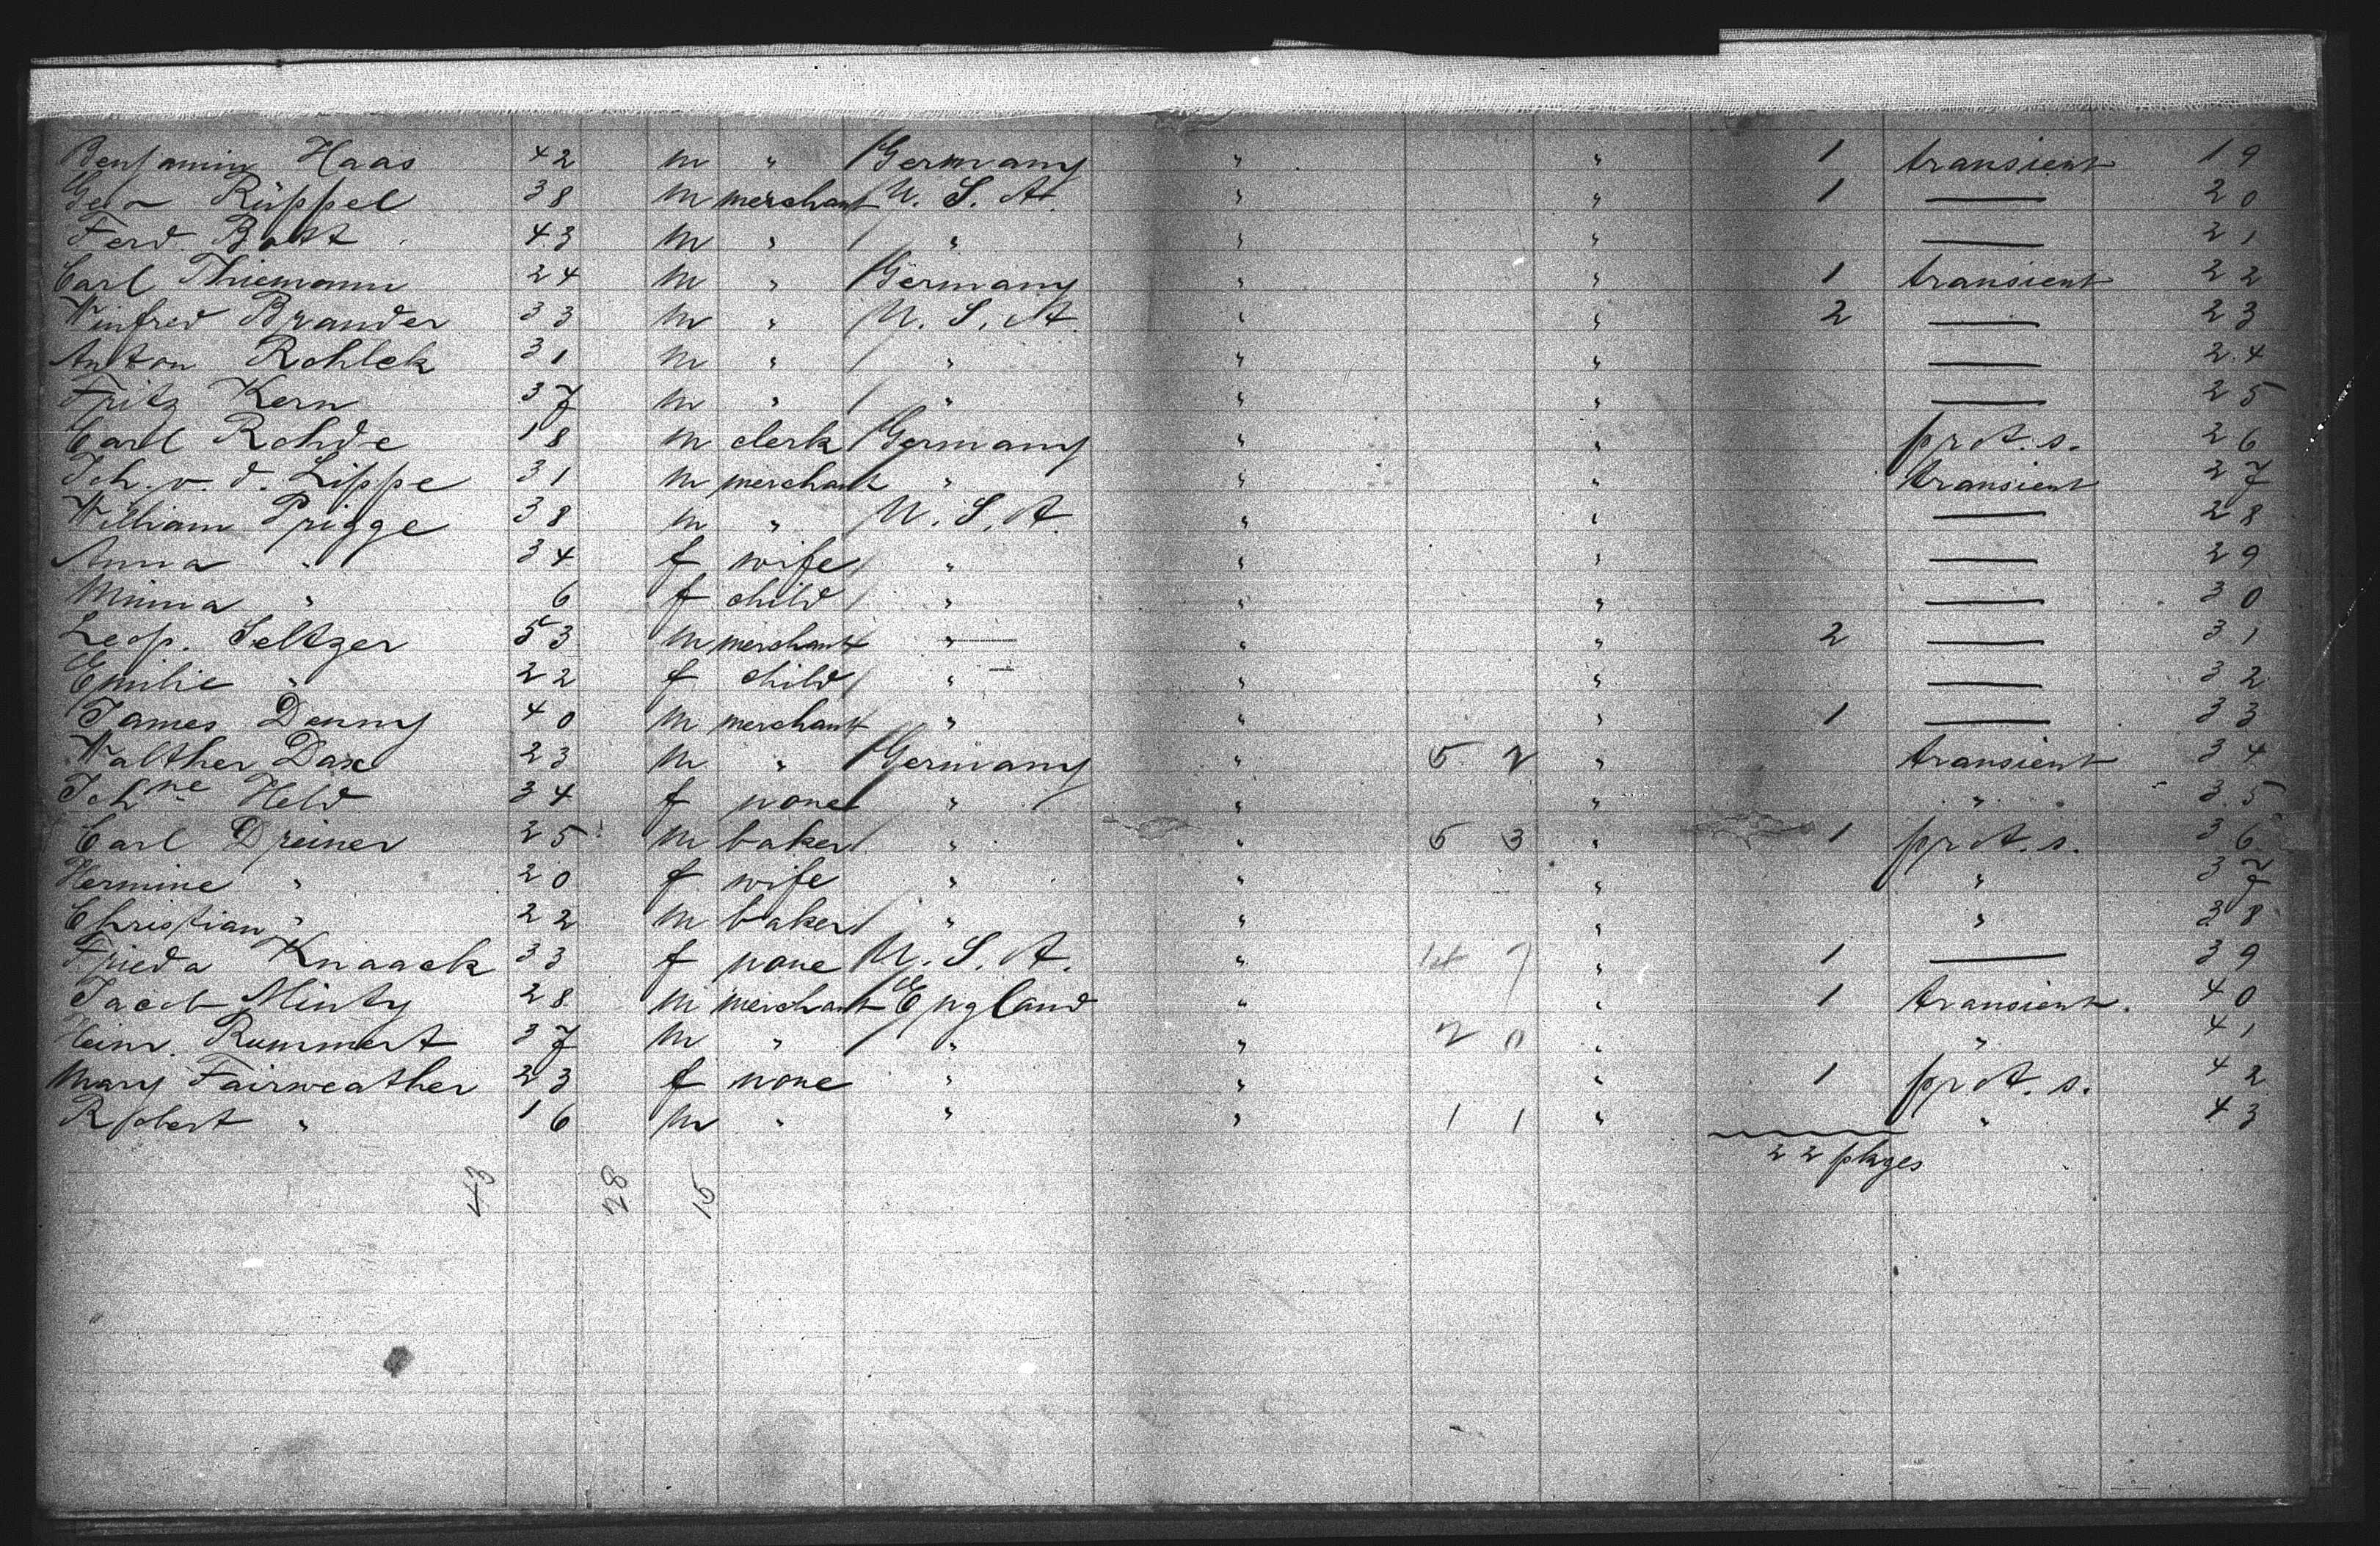 Benjamin Haas 42 m " Germany " " 1 transient 19
Geo Rüppel 38 m merchant U. S. A. " " 1 — 20
Ferd. Bott 43 m " " " " — 21
Carl Thiemann 24 m " Germany " " 1 transient 22
Winfred Brander 33 m " U. S. A. " " 2 — 23
Anton Rohlek 31 m " " " " — 24
Fritz Kern 37 m " " " " — 25
Carl Rohde 18 m clerk Germany " " prot. s. 26
Joh. v. d. Lippe 31 m merchant " " " transient 27
William Prigge 38 m " U. S. A. " " — 28
Anna " 34 f wife " " " — 29
Minna " 6 f child " " " — 30
Leop. Seltzer 53 m merchant " " " 2 — 31
Emilie " 22 f child " " " — 32
James Denny 40 m merchant " " " 1 — 33
Walther Dax 23 m " Germany " 5 2 " transient 34
Johne Held 34 f none " " " " 35
Carl Dreiner 25 m baker " " 5 3 " 1 prot. s. 36
Hermine " 20 f wife " " " " 37
Christian " 22 m baker " " " " 38
Frieda Knaack 33 f none U. S. A. " 14 7 " 1 — 39
Jacob Minty 28 m merchant England " " 1 transient. 40
Heinr. Rummert 37 m " " " 2 0 " " 41
Mary Fairweather 23 f none " " " 1 prot. s. 42
Robert " 16 m " " " 1 1 " " 43
22 pkges
43 28 15